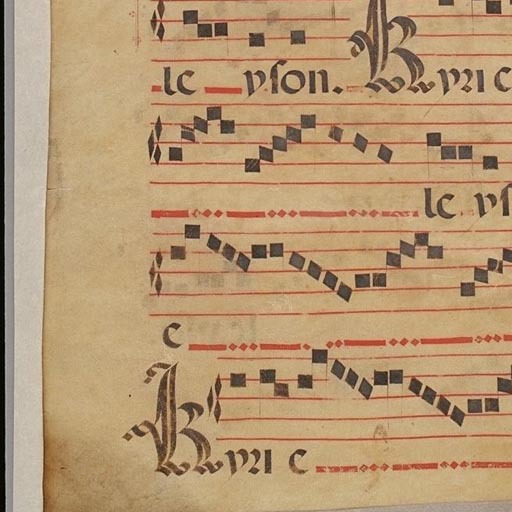 le yson. Kyrie
le ys
e
Kyrie